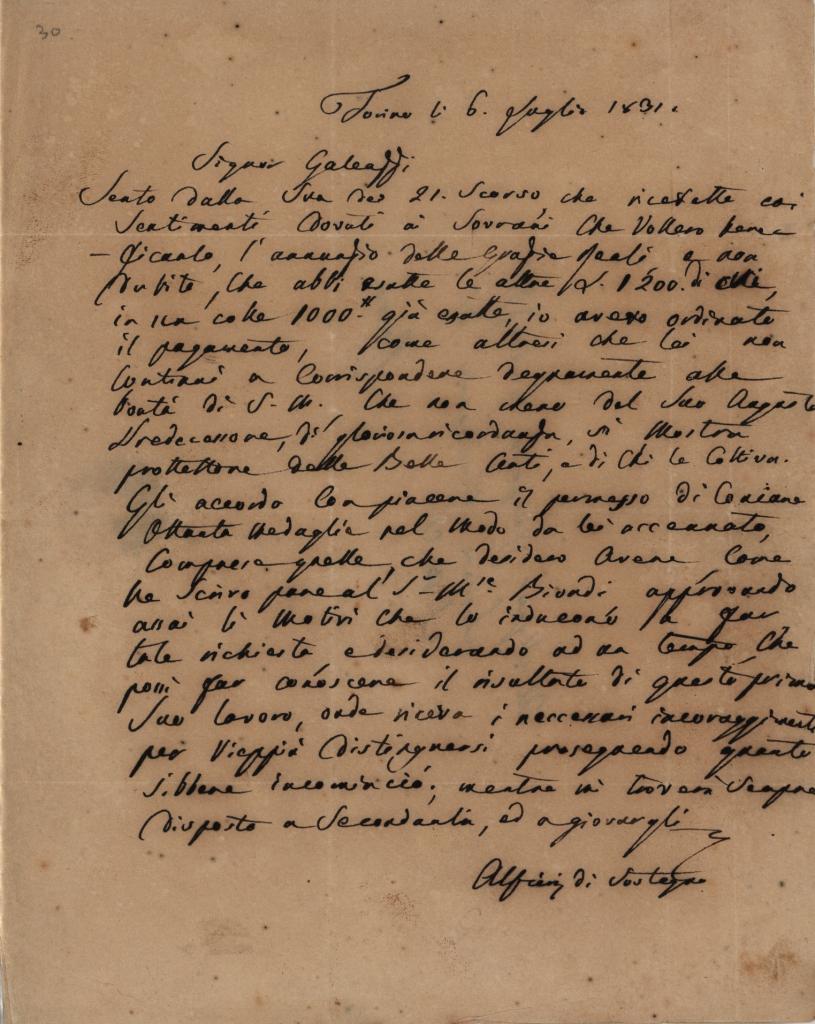 30
Torino li 6. Luglio 1831.
Signor Galeazzi
Sento dalla Sua dei 21. Scorso, che ricevette coi
Sentimenti Dovuti ai Sovrani Che Vollero bene-
-ficarlo, l'annunzio delle Grazie Reali e non
Dubito, Che abbi esatte le altre L. 1200. di
in un colle 1000.# già esatte, io avevo ordinato
il pagamento, come altresì che lei non
Continui a Corrispondere degnamente alle
bontà di S. M. Che non meno del Suo Augusto
Predecessore, di gloriosa ricordanza, si Mostra
protettore delle Belle Arti, e di Chi le Coltiva.
Gli accordo Con piacere il permesso di Coniare
Ottanta Medaglie nel Modo da lei accennato,
Comprese quelle, che desidero Avere Come
ne Scrivo pure al Sr. M.se Biondi approvando
assai li Motivi Che lo inducono a far
tale richiesta e desiderando ad un tempo, Che
possi far conoscere il risultato di questo primo
Suo lavoro, onde riceva i neccessari incoraggimenti
per Vieppiù Distinguersi proseguendo quanto
Sibbene incominciò; mentre mi troverà Sempre
Disposto a Secondarla, ed a giovargli
Alfieri di Sostegno